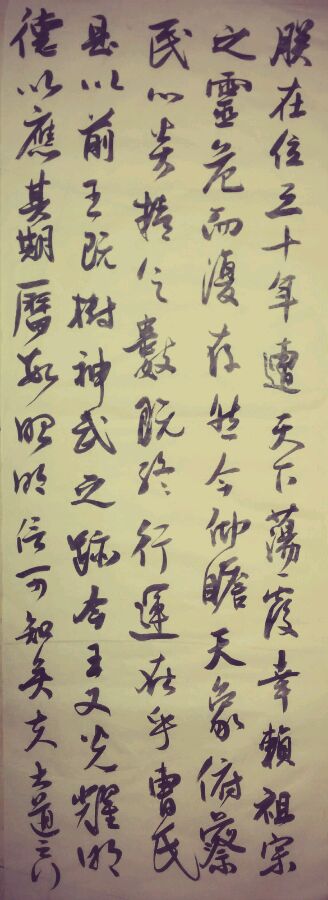 朕在位三十年遭天下蕩覆幸賴祖宗
之靈危而復存然今仰瞻天象俯察
民心炎精之數既終行運在乎曹氏
是以前王既樹神武之跡今王又光耀明
德以應其期曆數昭明信可知矣夫大道之行